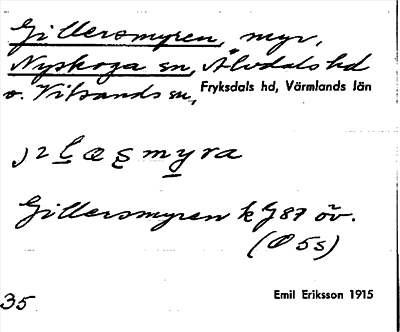 Gillersmyren, myr,
Nyskoga sn, Älvdals hd
o. Vitsands sn, Fryksdals hd, Värmlands län
Gillersmyren k G87 öv.
(Ö 5s)
35 Emil Eriksson 1915